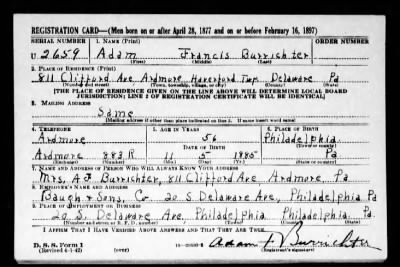 REGISTRATION CARD—(Men born on or after April 28, 1877 and on or before February 16, 1897)
SERIAL NUMBER 1. NAME (Print)
U 2659 Adam Francis Burrichter
(First) (Middle) (Last)
2. PLACE OF RESIDENCE (Print)
811 Clifford Ave. Ardmore Haverford Twp. Delaware Pa
(Number and street) (Town, township, village, or city) (County) (State)
[THE PLACE OF RESIDENCE GIVEN ON THE LINE ABOVE WILL DETERMINE LOCAL BOARD
JURISDICTION; LINE 2 OF REGISTRATION CERTIFICATE WILL BE IDENTICAL]
3. MAILING ADDRESS
Same
[Mailing address if other than place indicated on line 2. If same insert word same]
4. TELEPHONE 5. AGE IN YEARS 6. PLACE OF BIRTH
Ardmore 56 Philadelphia
DATE OF BIRTH (Town or county)
Ardmore 883 R 11 5 1885 Pa
(Exchange) (Number) (Mo.) (Day) (Yr.) (State or country)
7. NAME AND ADDRESS OF PERSON WHO WILL ALWAYS KNOW YOUR ADDRESS
Mrs. A. F. Burrichter, 811 Clifford Ave. Ardmore, Pa
8. EMPLOYER'S NAME AND ADDRESS
Baugh & Sons, Co 20 S. Delaware Ave, Philadelphia Pa
9. PLACE OF EMPLOYMENT OR BUSINESS
20 S. Delaware Ave, Philadelphia Philadelphia Pa.
(Number and street or R. F. D. number) (Town) (County) (State)
I AFFIRM THAT I HAVE VERIFIED ABOVE ANSWERS AND THAT THEY ARE TRUE.
D. S. S. Form 1 Adam F. Burrichter
(Revised 4-1-42) (over) (Registrant's signature)